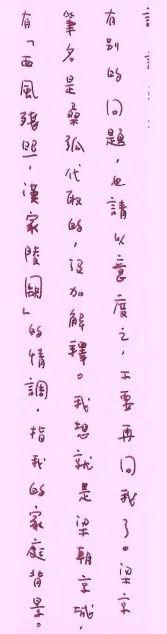 有别的问題，也請以意度之，不要再问我了。梁京
筆名是桑弧代取的，沒加解釋。我想就是梁朝京城，
有「西風殘照，漢家陵闕」的情調，指我的家庭背景。